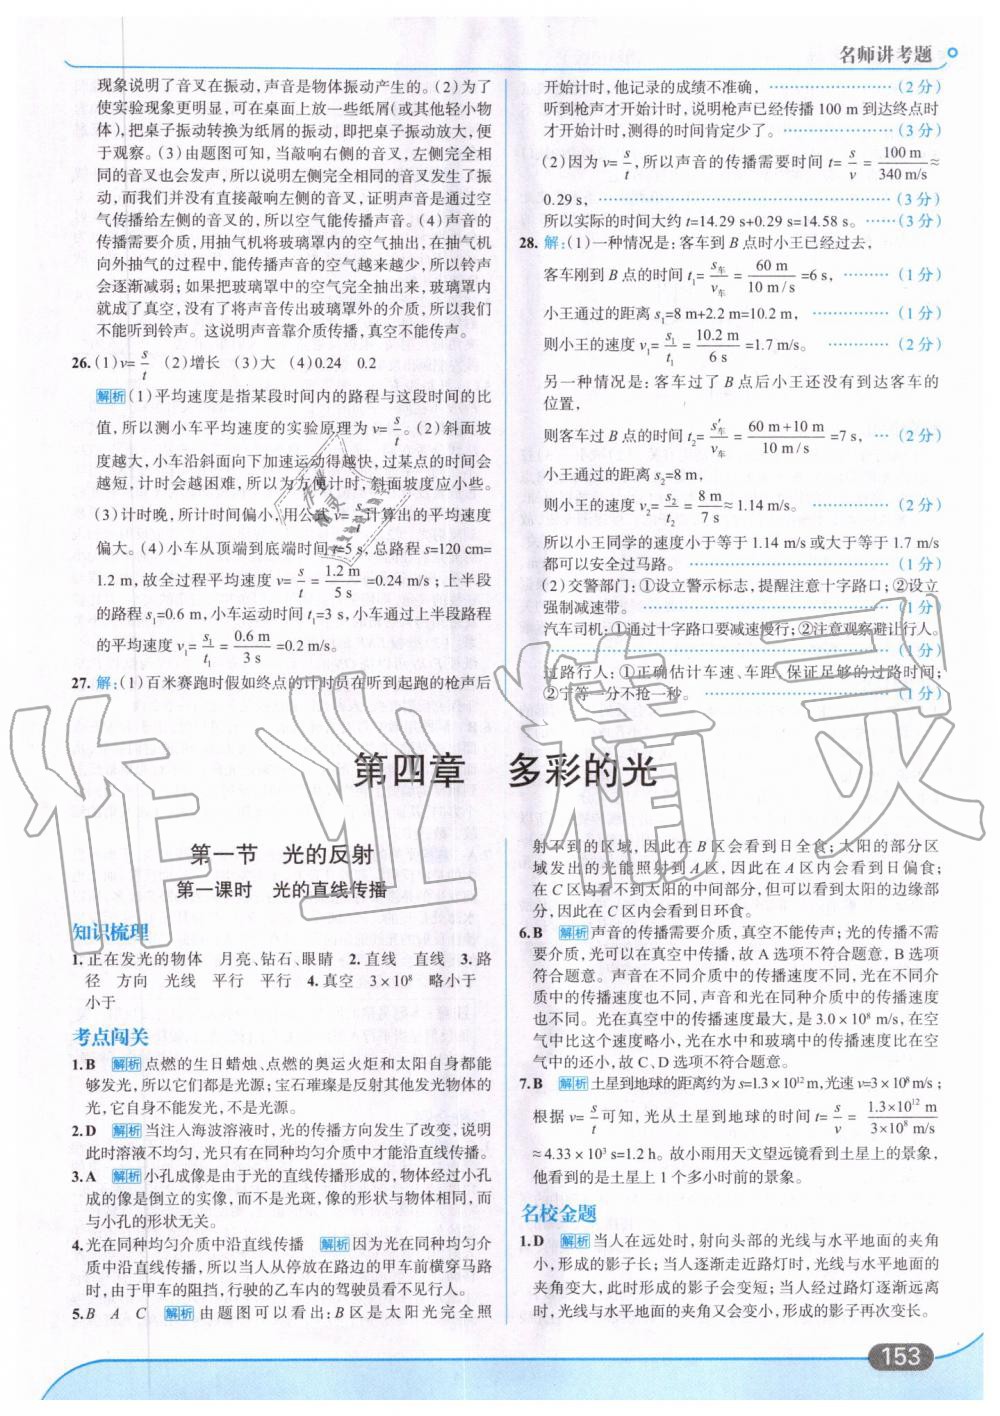 名师讲考题
现象说明了音叉在振动,声音是物体振动产生的。(2)为了
使实验现象更明显,可在桌面上放一些纸屑(或其他轻小物
体),把桌子振动转换为纸屑的振动,即把桌子振动放大,便
于观察。(3)由题图可知,当敲响右侧的音叉,左侧完全相
同的音叉也会发声,所以说明左侧完全相同的音叉发生了振
动,而我们并没有直接敲响左侧的音叉,证明声音是通过空
气传播给左侧的音叉的,所以空气能传播声音。(4)声音的
传播需要介质,用抽气机将玻璃罩内的空气抽出,在抽气机
向外抽气的过程中,能传播声音的空气越来越少,所以铃声
会逐渐减弱;如果把玻璃罩中的空气完全抽出来,玻璃罩内
就成了真空,没有了将声音传出玻璃罩外的介质,所以我们
不能听到铃声。这说明声音靠介质传播,真空不能传声。
26.(1)v=s/t (2)增长 (3)大 (4)0.24 0.2
解析 (1)平均速度是指某段时间内的路程与这段时间的比
值,所以测小车平均速度的实验原理为 v=s/t。(2)斜面坡
度越大,小车沿斜面向下加速运动得越快,过某点的时间会
越短,计时会越困难,所以为方便计时,斜面坡度应小些。
(3)计时晚,所计时间偏小,用公式 v=s/t 计算出的平均速度
偏大。(4)小车从顶端到底端时间 t=5 s,总路程 s=120 cm=
1.2 m,故全过程平均速度 v=s/t=1.2 m/5 s=0.24 m/s;上半段
的路程 s₁=0.6 m,小车运动时间 t₁=3 s,小车通过上半段路程
的平均速度 v₁=s₁/t₁=0.6 m/3 s=0.2 m/s。
27.解:(1)百米赛跑时假如终点的计时员在听到起跑的枪声后
开始计时,他记录的成绩不准确,……………………(2分)
听到枪声才开始计时,说明枪声已经传播 100 m 到达终点时
才开始计时,测得的时间肯定少了。…………………(3分)
(2)因为 v=s/t,所以声音的传播需要时间 t=s/v=100 m/340 m/s≈
0.29 s,……………………………………………………(3分)
所以实际的时间大约 t=14.29 s+0.29 s=14.58 s。……(3分)
28.解:(1)一种情况是:客车到 B 点时小王已经过去,
客车刚到 B 点的时间 t₁=s车/v车=60 m/10 m/s=6 s,………(1分)
小王通过的距离 s₁=8 m+2.2 m=10.2 m,……………(1分)
则小王的速度 v₁=s₁/t₁=10.2 m/6 s=1.7 m/s。…………(2分)
另一种情况是:客车过了 B 点后小王还没有到达客车的
位置,
则客车过 B 点的时间 t₂=s′车/v车=60 m+10 m/10 m/s=7 s,…(2分)
小王通过的距离 s₂=8 m,
则小王的速度 v₂=s₂/t₂=8 m/7 s≈1.14 m/s。……………(2分)
所以小王同学的速度小于等于 1.14 m/s 或大于等于 1.7 m/s
都可以安全过马路。……………………………………(1分)
(2)交警部门:①设立警示标志,提醒注意十字路口;②设立
强制减速带。……………………………………………(1分)
汽车司机:①通过十字路口要减速慢行;②注意观察避让行人。
……………………………………………………………(1分)
过路行人:①正确估计车速、车距,保证足够的过路时间;
②宁等一分不抢一秒。…………………………………(1分)
第四章 多彩的光
第一节 光的反射
第一课时 光的直线传播
知识梳理
1.正在发光的物体 月亮、钻石、眼睛 2.直线 直线 3.路
径 方向 光线 平行 平行 4.真空 3×10⁸ 略小于
小于
考点闯关
1.B 解析 点燃的生日蜡烛、点燃的奥运火炬和太阳自身都能
够发光,所以它们都是光源;宝石璀璨是反射其他发光物体的
光,它自身不能发光,不是光源。
2.D 解析 当注入海波溶液时,光的传播方向发生了改变,说明
此时溶液不均匀,光只有在同种均匀介质中才能沿直线传播。
3.A 解析 小孔成像是由于光的直线传播形成的,物体经过小孔
成的像是倒立的实像,而不是光斑,像的形状与物体相同,而
与小孔的形状无关。
4.光在同种均匀介质中沿直线传播 解析 因为光在同种均匀介
质中沿直线传播,所以当人从停放在路边的甲车前横穿马路
时,由于甲车的阻挡,行驶的乙车内的驾驶员看不见行人。
5.B A C 解析 由题图可以看出:B 区是太阳光完全照
射不到的区域,因此在 B 区会看到日全食;太阳的部分区
域发出的光能照射到 A 区,因此在 A 区内会看到日偏食;
在 C 区内看不到太阳的中间部分,但可以看到太阳的边缘部
分,因此在 C 区内会看到日环食。
6.B 解析 声音的传播需要介质,真空不能传声;光的传播不需
要介质,光可以在真空中传播,故 A 选项不符合题意,B 选项
符合题意。声音在不同介质中的传播速度不同,光在不同介
质中的传播速度也不同,声音和光在同种介质中的传播速度
也不同。光在真空中的传播速度最大,是 3.0×10⁸ m/s,在空
气中比这个速度略小,光在水中和玻璃中的传播速度比在空
气中的还小,故 C、D 选项不符合题意。
7.B 解析 土星到地球的距离约为 s=1.3×10¹² m,光速 v=3×10⁸ m/s;
根据 v=s/t 可知,光从土星到地球的时间 t=s/v=1.3×10¹² m/3×10⁸ m/s
≈4.33×10³ s=1.2 h。故小雨用天文望远镜看到土星上的景象,
他看到的是土星上 1 个多小时前的景象。
名校金题
1.D 解析 当人在远处时,射向头部的光线与水平地面的夹角
小,形成的影子长;当人逐渐走近路灯时,光线与水平地面的
夹角变大,此时形成的影子会变短;当人经过路灯逐渐远离
时,光线与水平地面的夹角又会变小,形成的影子再次变长。
153
作业精灵